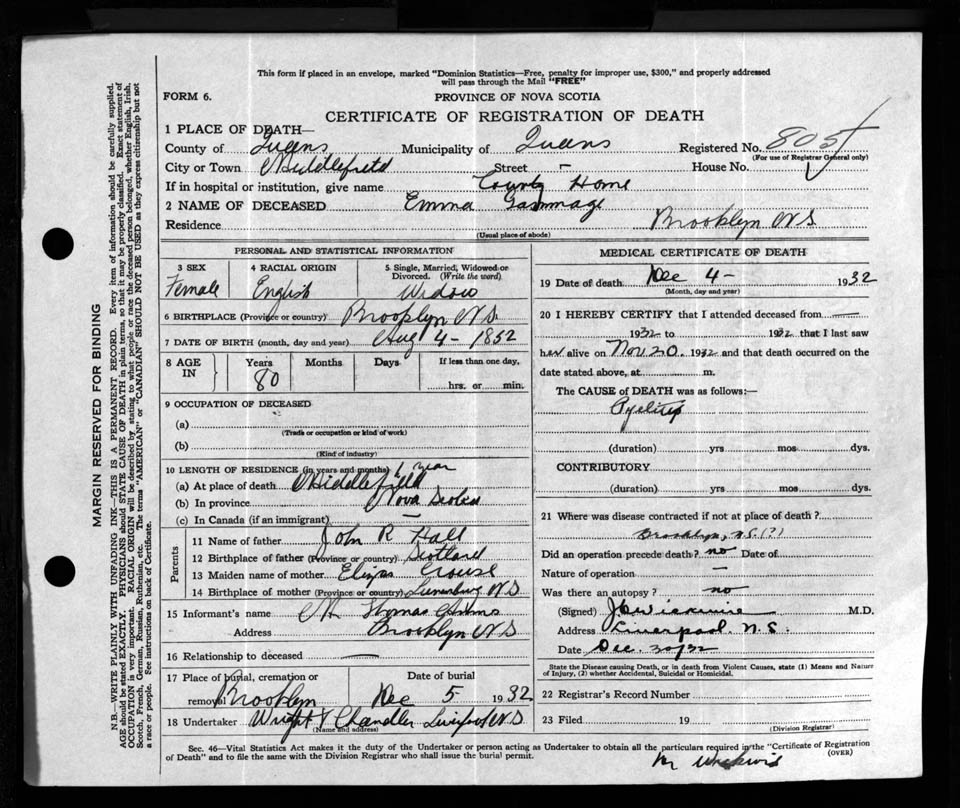 This form if placed in an envelope, marked "Dominion Statistics—Free, penalty for improper use, $300," and properly addressed
will pass through the Mail "FREE"
FORM 6.
PROVINCE OF NOVA SCOTIA
CERTIFICATE OF REGISTRATION OF DEATH
1 PLACE OF DEATH—
County of Queens Municipality of Queens Registered No. 805
(For use of Registrar General only)
City or Town Middlefield Street – House No.
If in hospital or institution, give name County Home
2 NAME OF DECEASED Emma Gammage
Residence Brooklyn N S
(Usual place of abode)
PERSONAL AND STATISTICAL INFORMATION
3 SEX Female
4 RACIAL ORIGIN English
5 Single, Married, Widowed or Divorced. (Write the word) Widow
6 BIRTHPLACE (Province or country) Brooklyn N.S.
7 DATE OF BIRTH (month, day and year) Aug 4 - 1852
8 AGE IN Years 80 Months Days If less than one day, hrs. or min.
9 OCCUPATION OF DECEASED
(a)
(Trade or occupation or kind of work)
(b)
(Kind of industry)
10 LENGTH OF RESIDENCE (in years and months) 1 year
(a) At place of death Middlefield
(b) In province Nova Scotia
(c) In Canada (if an immigrant) —
Parents
11 Name of father John R Hall
12 Birthplace of father (Province or country) Scotland
13 Maiden name of mother Eliza Crouse
14 Birthplace of mother (Province or country) Lunenburg N S
15 Informant's name Thomas
Address Brooklyn N S
16 Relationship to deceased —
17 Place of burial, cremation or removal Brooklyn
Date of burial Dec 5 1932
18 Undertaker Wright & Chandler Liverpool N S
(Name and address)
MEDICAL CERTIFICATE OF DEATH
19 Date of death Dec 4 - 1932
(Month, day and year)
20 I HEREBY CERTIFY that I attended deceased from —
1932 to 1932 that I last saw
her alive on Nov 20. 1932 and that death occurred on the
date stated above, at m.
The CAUSE of DEATH was as follows:—
Pyelitis
(duration) yrs mos dys.
CONTRIBUTORY
(duration) yrs mos dys.
21 Where was disease contracted if not at place of death?
Brooklyn, N.S. (?)
Did an operation precede death? no Date of
Nature of operation —
Was there an autopsy? no
(Signed) M.D.
Address Liverpool, N.S.
Date Dec. 30/32
State the Disease causing Death, or in death from Violent Causes, state (1) Means and Nature
of Injury, (2) whether Accidental, Suicidal or Homicidal.
22 Registrar's Record Number
23 Filed 19
(Division Registrar)
Sec. 46—Vital Statistics Act makes it the duty of the Undertaker or person acting as Undertaker to obtain all the particulars required in the "Certificate of Registration
of Death" and to file the same with the Division Registrar who shall issue the burial permit.
(OVER)
MARGIN RESERVED FOR BINDING
N.B.—WRITE PLAINLY WITH UNFADING INK—THIS IS A PERMANENT RECORD. Every item of information should be carefully supplied.
AGE should be stated EXACTLY. PHYSICIANS should STATE CAUSE OF DEATH in plain terms, so that it may be properly classified. Exact statement of
OCCUPATION is very important. RACIAL ORIGIN will be described by stating to what people or race the deceased person belonged, whether English, Irish,
Scotch, French, German, Russian, Ruthenian, etc. The terms "AMERICAN" or "CANADIAN" SHOULD NOT BE USED as they express citizenship but not
a race or people. See instructions on back of Certificate.